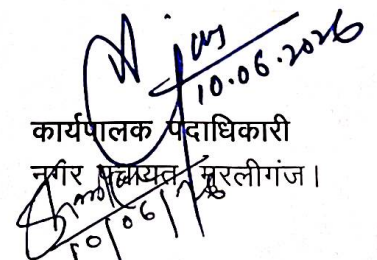 10.06.2026
कार्यपालक पदाधिकारी
नगर पंचायत, मुरलीगंज।
10/06/26